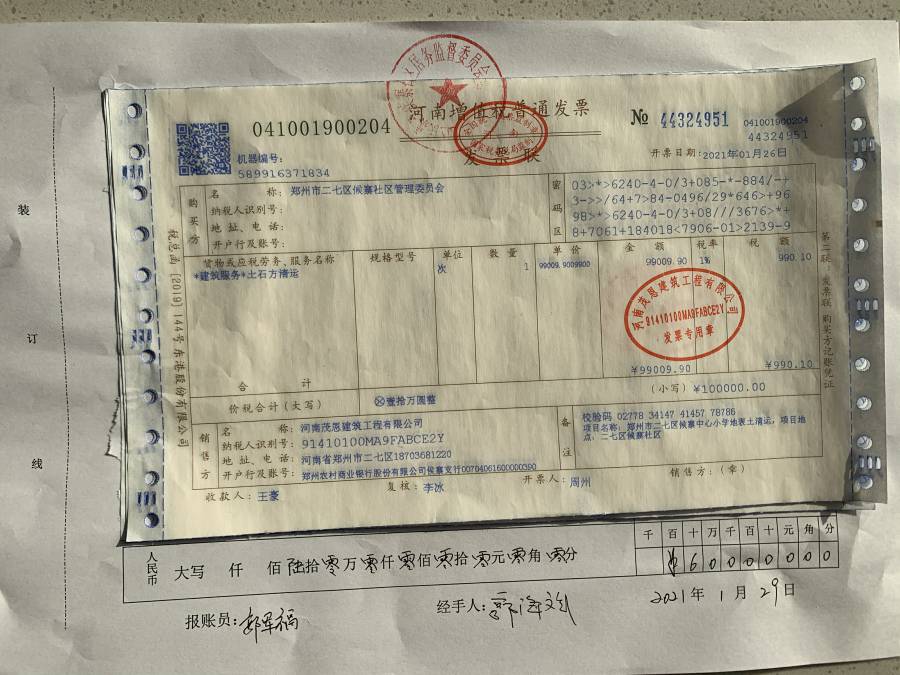 河南增值税普通发票
发票联
041001900204
№ 44324951
041001900204
44324951
开票日期:2021年01月26日
机器编号:
589916371834
购买方
名 称: 郑州市二七区候寨社区管理委员会
纳税人识别号:
地 址、电 话:
开户行及账号:
密码区
03>*>6240-4-0/3+085-*-884/-+
3->>/64+7>84-0496/29*646>+96
98>*>6240-4-0/3+08///3676>*+
8+7061+184018<7906-01>2139-9
货物或应税劳务、服务名称 规格型号 单位 数 量 单 价 金 额 税率 税 额
*建筑服务*土石方清运 次 1 99009.9009900 99009.90 1% 990.10
河南茂恩建筑工程有限公司
91410100MA9FABCE2Y
发票专用章
合 计 ¥99009.90 ¥990.10
价税合计(大写) ⊗壹拾万圆整 (小写)¥100000.00
销售方
名 称: 河南茂恩建筑工程有限公司
纳税人识别号: 91410100MA9FABCE2Y
地 址、电 话: 河南省郑州市二七区18703681220
开户行及账号: 郑州农村商业银行股份有限公司候寨支行00704061600000390
备注
校验码 02778 34147 41457 78786
项目名称:郑州市二七区候寨中心小学地表土清运,项目地
点:二七区候寨社区
收款人:王豪 复核:李冰 开票人:周州 销售方:(章)
税总函[2019]144号东港股份有限公司
第二联:发票联 购买方记账凭证
装
订
线
千 百 十 万 千 百 十 元 角 分
6 0 0 0 0 0 0 0
人民币 大写 仟 佰 陆拾 零万 零仟 零佰 零拾 零元 零角 零分
报账员:
经手人:
2021年 1月 29日